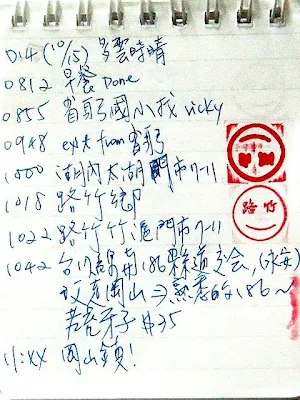 D14 (10/15) 多雲時晴
0812 早餐 Done
0855 省躬國小找 vicky
0948 exit from 省躬
1000 湖內太湖門市 7-11
1018 路竹
1022 路竹竹滬門市 7-11
1042 台 186縣道交会, (永安)
岡山 ⇒ 熟悉的186~
茶子 $35
11:xx 岡山鎮!
路竹